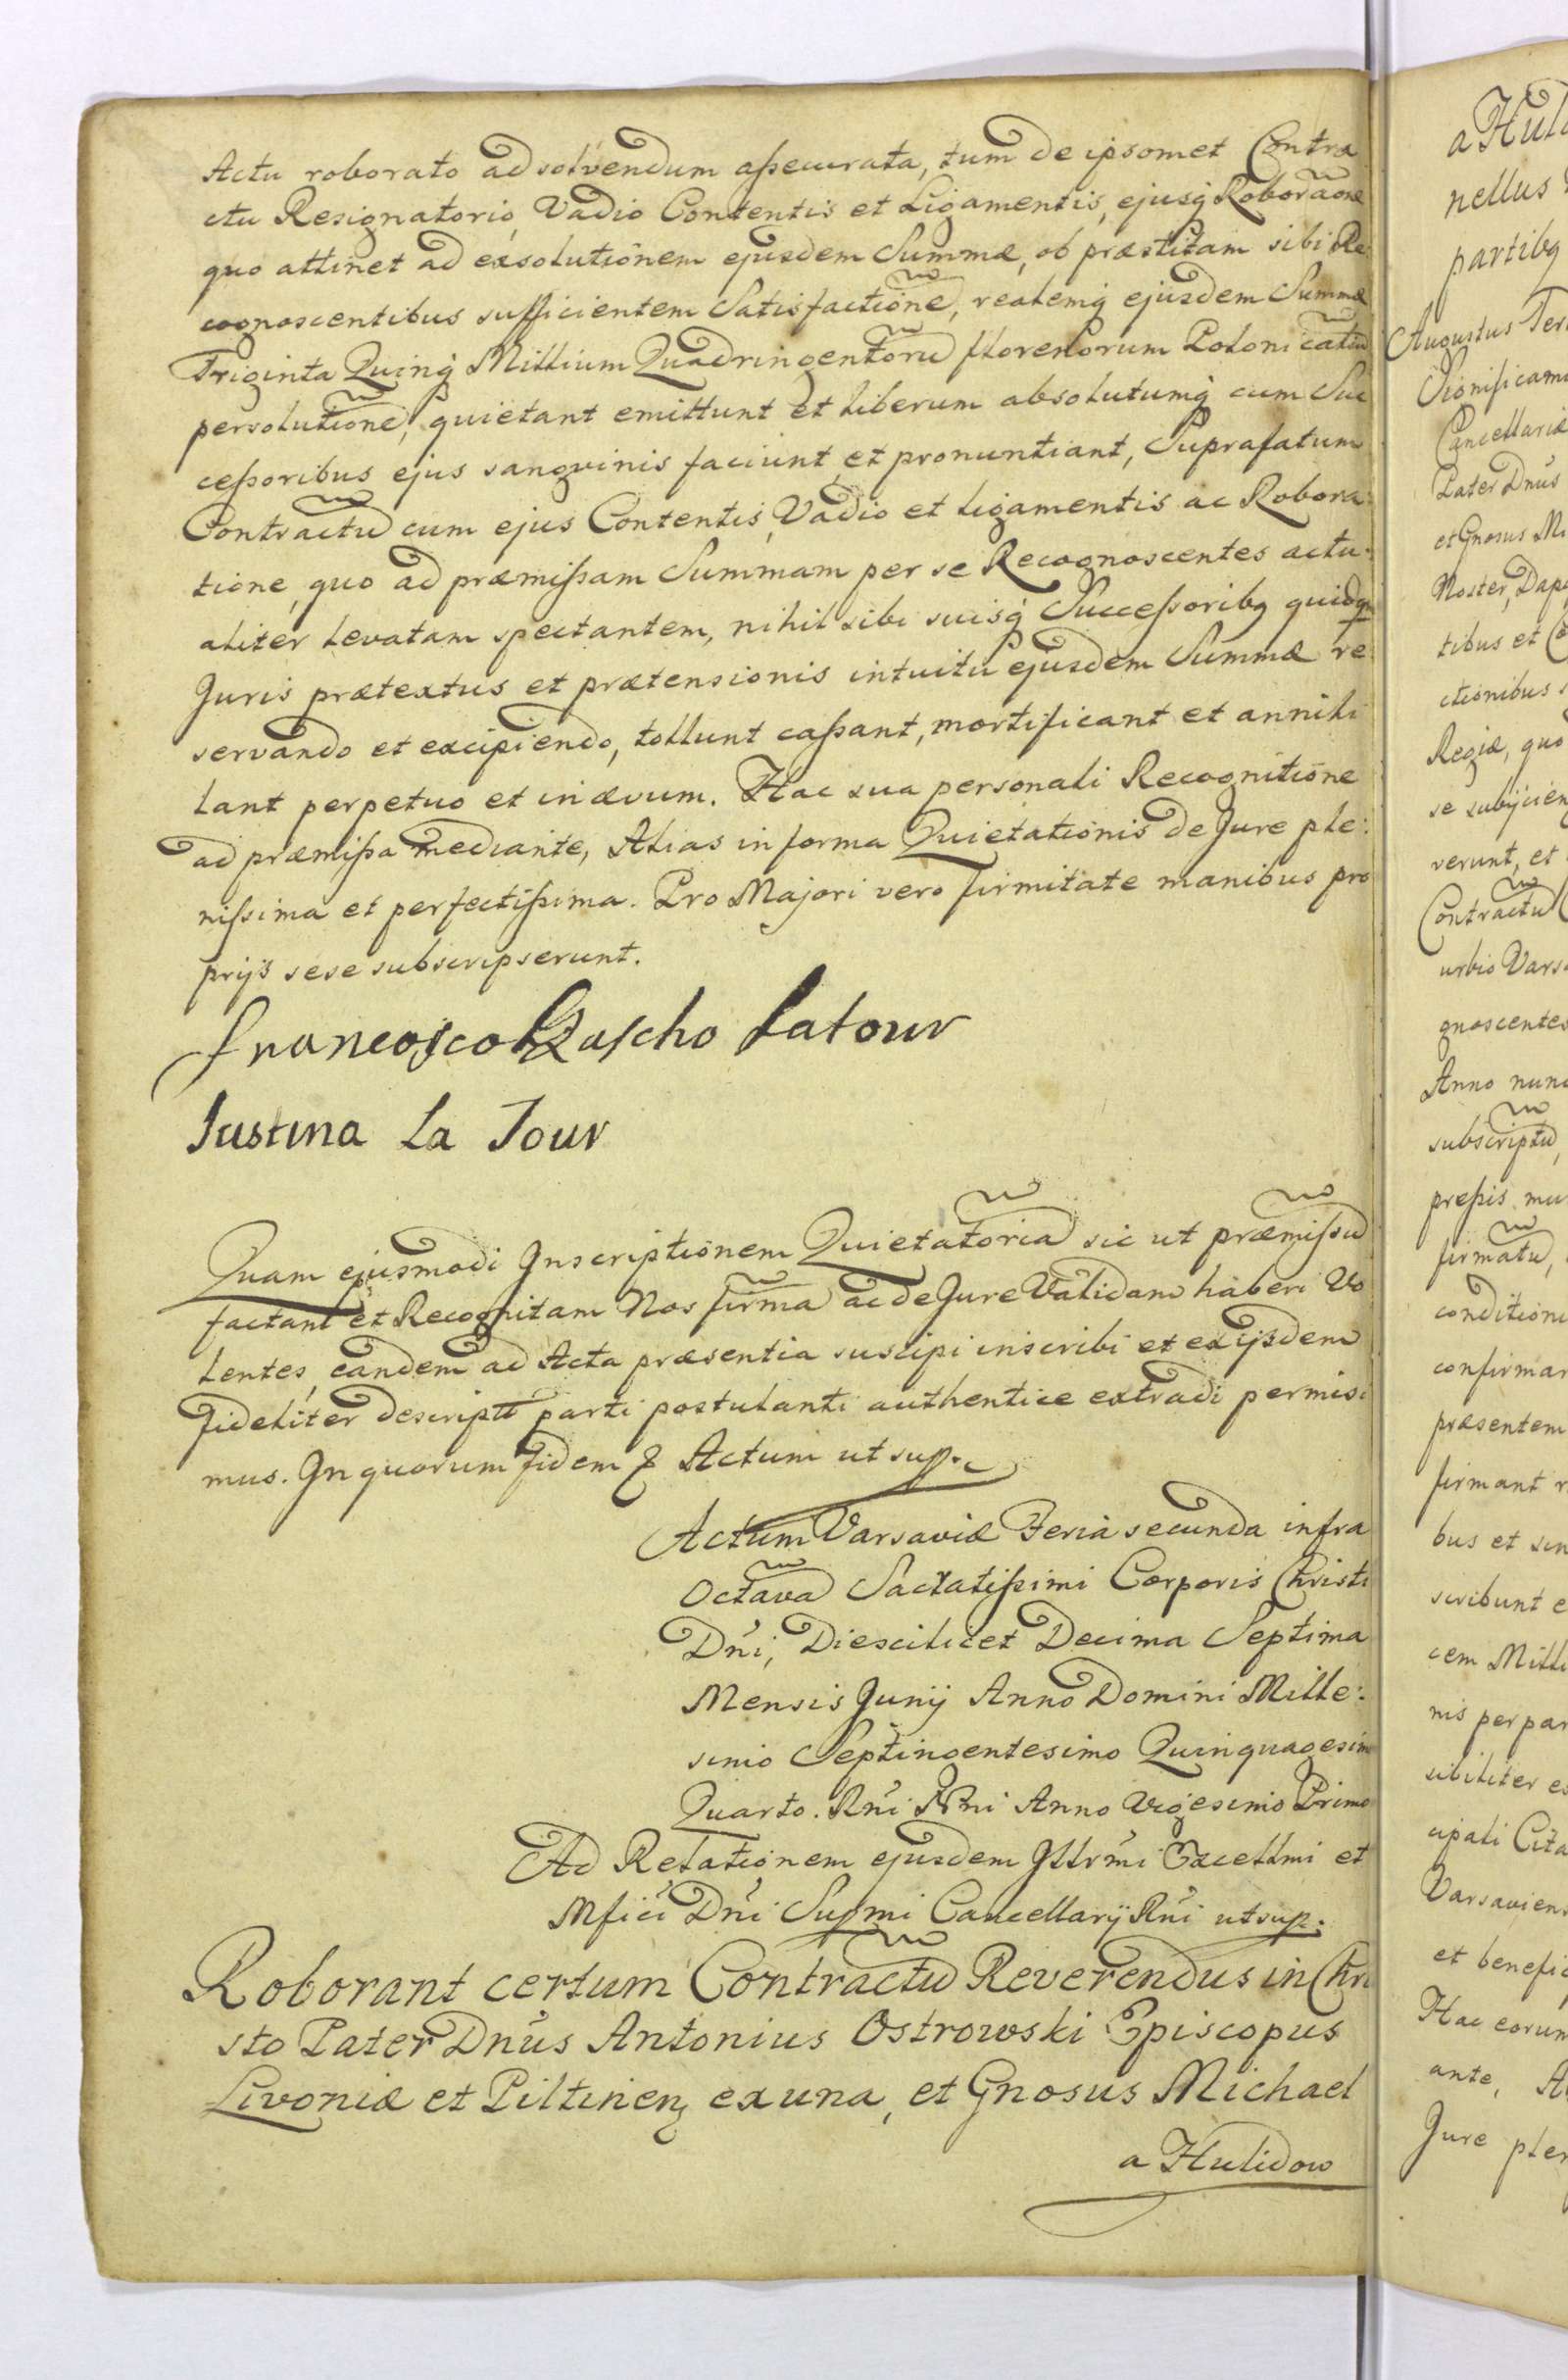 Actu roborato ad solvendum aſsecurata, tum de ipsomet Contra
ctu Resignatorio, Vadio Contentis et Ligamentis, ejusq́ Roboraone
quo attinet ad exsolutionem ejusdem Summæ, ob præstitam sibi Re
cognoscentibus sufficientem Satisfactione, realemq́ ejusdem Summæ
Triginta Quinq́ Millium Quadringentoru florenorum Polonicaliu
persolutione, quietant emittunt et liberum absolutumq́ cum Suc
ceſsoribus ejus sangvinis faciunt et pronuntiant, Suprafatum
Contractu cum ejus Contentis, Vadio et ligamentis ac Robora:
tione, quo ad præmiſsam Summam per se Recognoscentes actu:
aliter levatam spectantem, nihil sibi suisq́ Succeſsoribq quidqm
Juris prætextus et prætensionis intuitu ejusdem Summæ re:
servando et excipiendo, tollunt caſsant, mortificant et annihi
lant perpetuo et in ævum. Hac sua personali Recognitione
ad præmiſsa mediante, Alias in forma Quietationis de Jure ple:
niſsima et perfectiſsima. Pro Majori vero firmitate manibus pro
prijs sese subscripserunt.
Latour
Justina La Tour
Quam ejusmodi Inscriptionem Quietatoria sic ut præmiſsu
factam et Recognitam Nos firma ac de Jure Validam haberi Vo
lentes, eandem ad Acta præsentia suscipi inscribi et ex ijsdem
fideliter descriptt parti postulanti authentice extradi permisi
mus. In quorum fidem & Actum ut sup.
Actum Varsaviæ Feria secunda infra
Octava Sacratiſsimi Corporis Christi
Dn̄i, Die scilicet Decima Septima
Mensis Junij Anno Domini Mille:
simo Septingentesimo Quinquagesimo
Quarto. Rn̄i Nr̄i Anno Vigesimo Primo
Ad Relationem ejusdem Illrm̄i Excellmi et
Mfici Dn̄i Supmi Cancellarij Rn̄i ut sup.
Roborant certum Contractu Reverendus in Chri
sto Pater Dn̄us Antonius Ostrowski Episcopus
Livoniæ et Piltinen̄ ex una, et Gnosus Michael
a Hulidow
nellus
partibq
Augustus Ter
Significam
Cancellariæ
Pater Dn̄us
et Gnosus Mi
Noster, Dap
tibus et
ctionibus
Regiæ, quo
se subijcien
verunt, et
Contractu
urbio Vars
gnoscentes
Anno nunc
subscriptu,
preſsis mu
firmatu,
conditioni
confirmar
præsentem
firmant r
bus et sin
scribunt e
cem Milli
nis per par
sibiliter es
cipali Cita
Varsaviens
et benefic
Hac eorum
ante, A
Jure plen